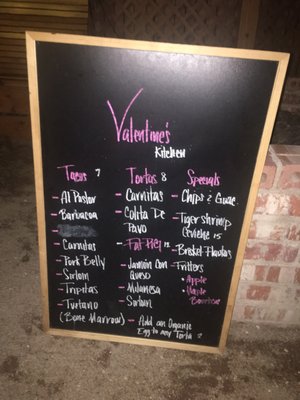 Valentine's
Kitchen
Tacos 7
- Al Pastor
- Barbacoa
- Carnitas
- Pork Belly
- Sirloin
- Tripitas
- Tuetano
(Bone Marrow)
Tortas 8
- Carnitas
- Colita De
Pavo
- Jamón Con
Queso
- Milanesa
- Sirloin
- Add an Organic
Egg to any Torta 2
Specials
- Chips & Guac
- Tiger shrimp
Ceviche 15
- Brisket Flautas
- Fritters
• Apple
• Maple
Bourbon